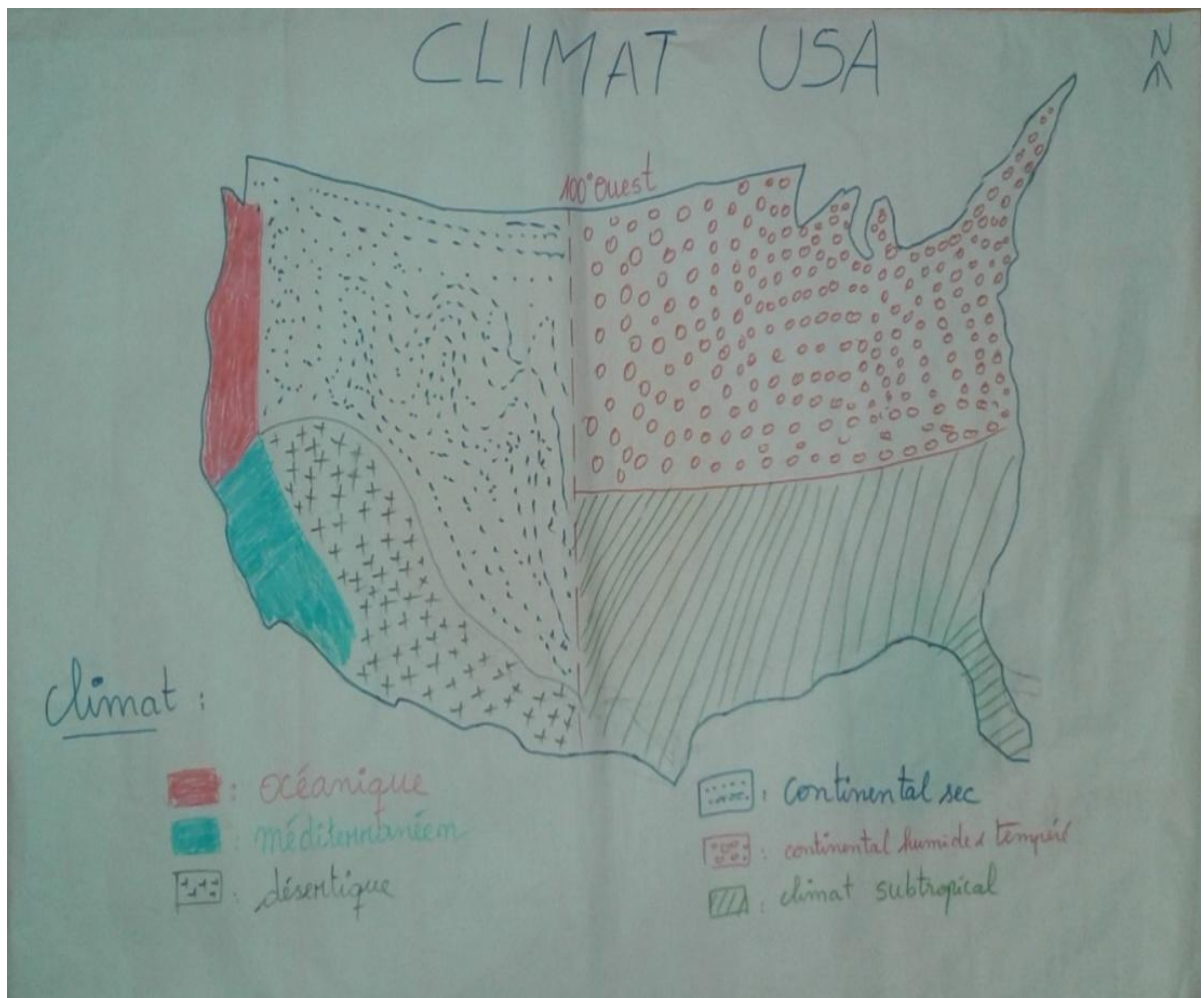 CLIMAT USA
N
100° Ouest
climat :
: océanique
: méditerranéen
: désertique
: continental sec
: continental humide tempéré
: climat subtropical